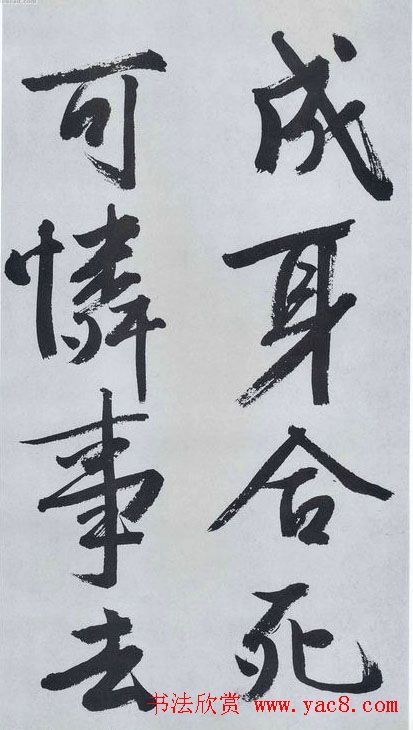 成身合死
可憐事去
书法欣赏 www.yac8.com